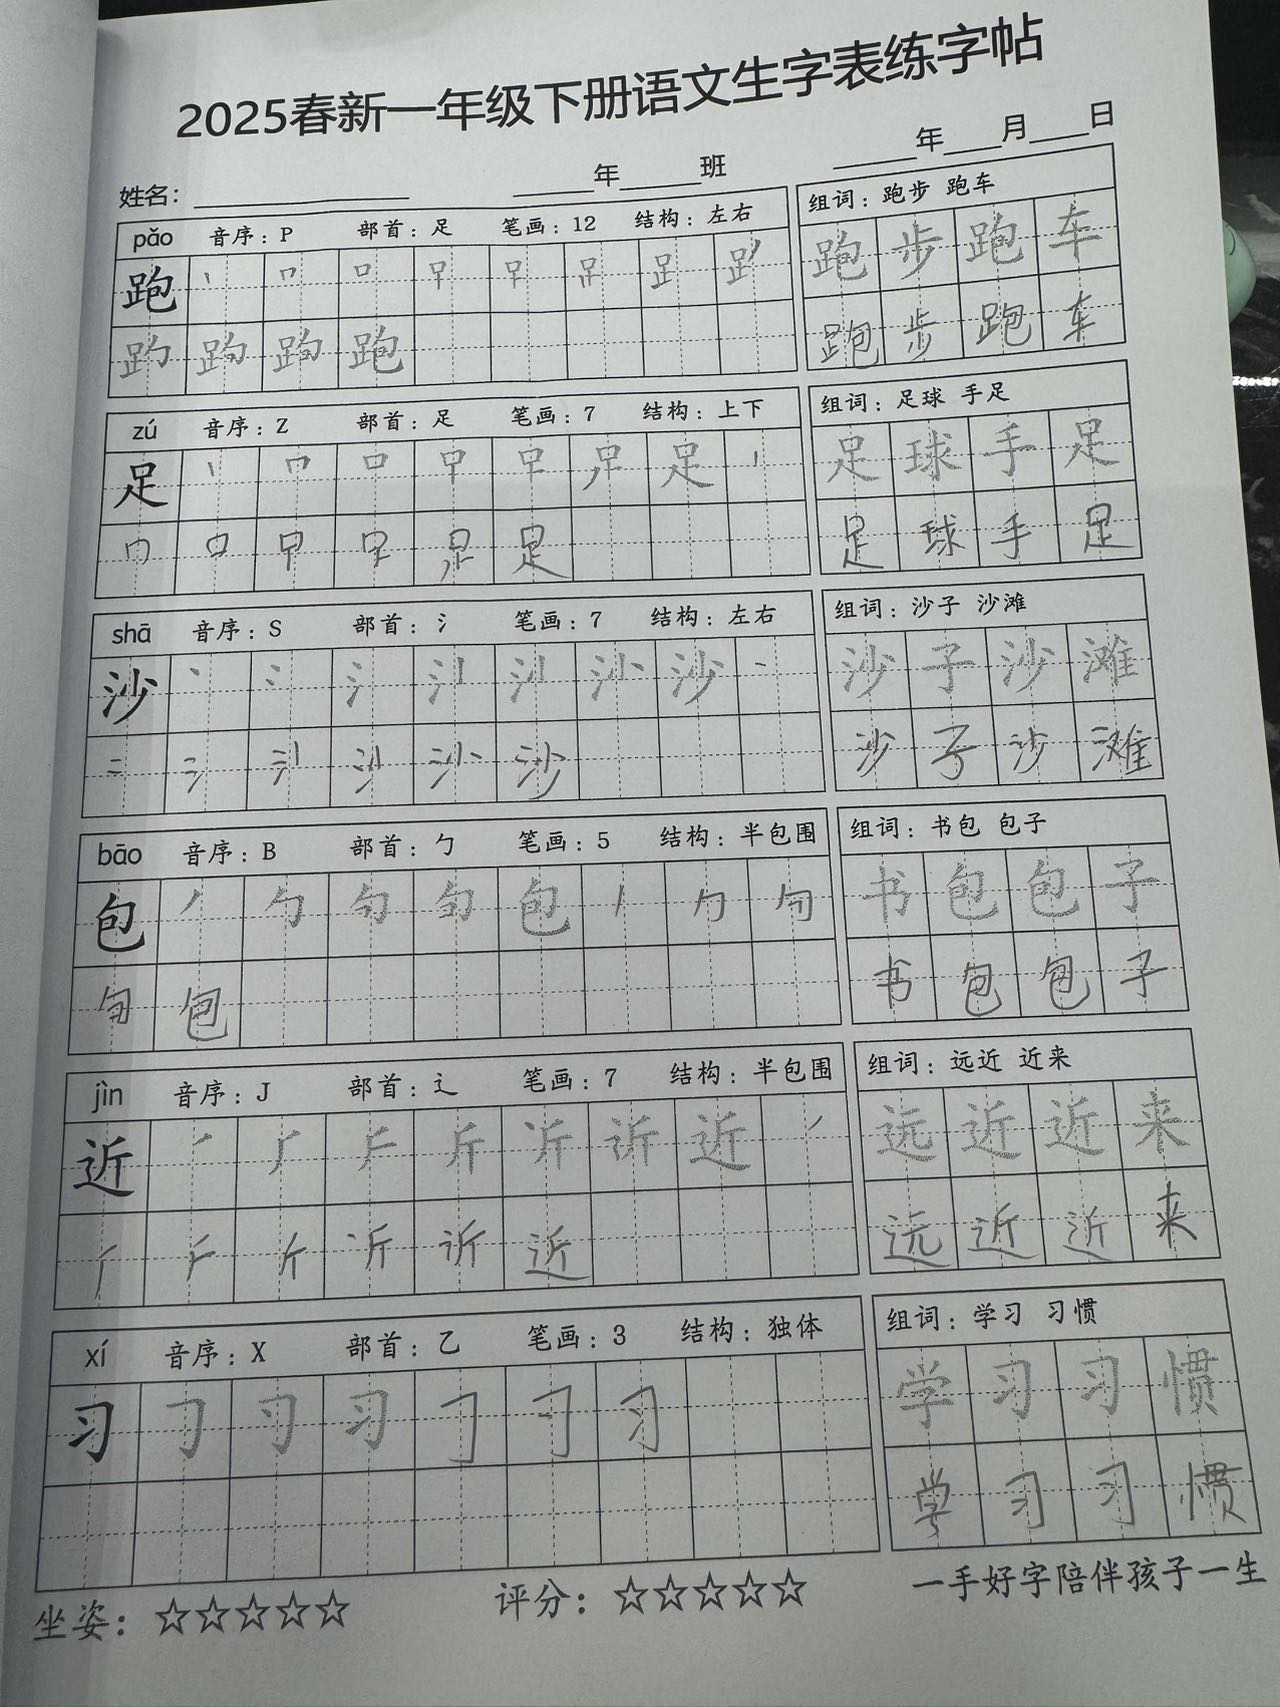 2025春新一年级下册语文生字表练字帖
姓名：________ ____年____班 ____年____月____日
pǎo 音序：P 部首：足 笔画：12 结构：左右
跑
跑
组词：跑步 跑车
跑步跑车
跑步跑车
zú 音序：Z 部首：足 笔画：7 结构：上下
足 足
足
组词：足球 手足
足球手足
足球手足
shā 音序：S 部首：氵 笔画：7 结构：左右
沙 沙
沙
组词：沙子 沙滩
沙子沙滩
沙子沙滩
bāo 音序：B 部首：勹 笔画：5 结构：半包围
包 包
包
组词：书包 包子
书包包子
书包包子
jìn 音序：J 部首：辶 笔画：7 结构：半包围
近 近
近
组词：远近 近来
远近近来
远近近来
xí 音序：X 部首：乙 笔画：3 结构：独体
习 习 习
组词：学习 习惯
学习习惯
学习习惯
坐姿：☆☆☆☆☆ 评分：☆☆☆☆☆ 一手好字陪伴孩子一生